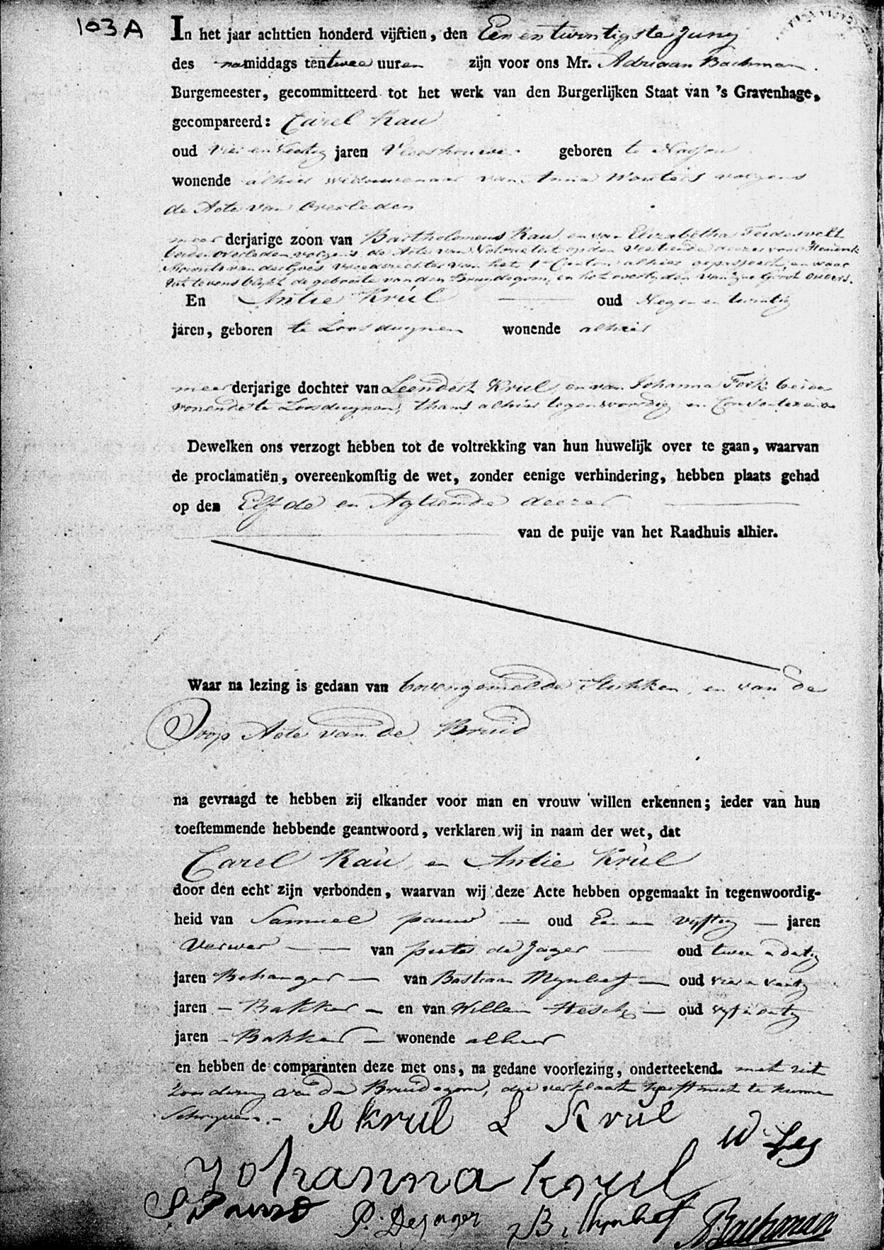 103 A
In het jaar achttien honderd vijftien, den Een en twintigste Juny
des namiddags ten twee uuren zijn voor ons Mr. Adriaan Bachman
Burgemeester, gecommitteerd tot het werk van den Burgerlijken Staat van 's Gravenhage,
gecompareerd: Carel Rau
oud jaren geboren te
wonende alhier weduwenaar van Anna Wouters volgens
de Acte van Overleden
meerderjarige zoon van Bartholomeus Rau, en van Elizabetha
beide overleden volgens de Acte van
van der Goes Vrederechter van het 1e Canton alhier gepasseerd, en waar
uit tevens blijkt de geboorte van den Bruidegom, en het overlyden van zyn Groot ouders.
En Antie Krul oud Negen en twintig
jaren, geboren te Loosduynen wonende alhier
meerderjarige dochter van Leendert Krul, en van Johanna beide
wonende te Loosduynen, thans alhier tegenwoordig en
Dewelken ons verzogt hebben tot de voltrekking van hun huwelijk over te gaan, waarvan
de proclamatiën, overeenkomstig de wet, zonder eenige verhindering, hebben plaats gehad
op den Elfde en Agtiende dezer
van de puije van het Raadhuis alhier.
Waar na lezing is gedaan van bovengemelde Stukken, en van de
Doop Acte van de Bruid
na gevraagd te hebben zij elkander voor man en vrouw willen erkennen; ieder van hun
toestemmende hebbende geantwoord, verklaren wij in naam der wet, dat
Carel Rau, en Antie Krul
door den echt zijn verbonden, waarvan wij deze Acte hebben opgemaakt in tegenwoordig-
heid van Samuel Pauw oud Een en vyftig jaren
Verwer van Pieter de Jager oud twee en dertig
jaren Behanger van Bastiaan Mynlief oud vier en veertig
jaren Bakker en van Willem oud vyf en dertig
jaren Bakker wonende alhier
en hebben de comparanten deze met ons, na gedane voorlezing, onderteekend. met uit
zondering van den Bruidegom, die verklaarde heeft niet te kunnen
Schryven.
A Krul L Krul
W.
Johanna krul
S. Pauw P. De Jager B. Mynlief ABachman